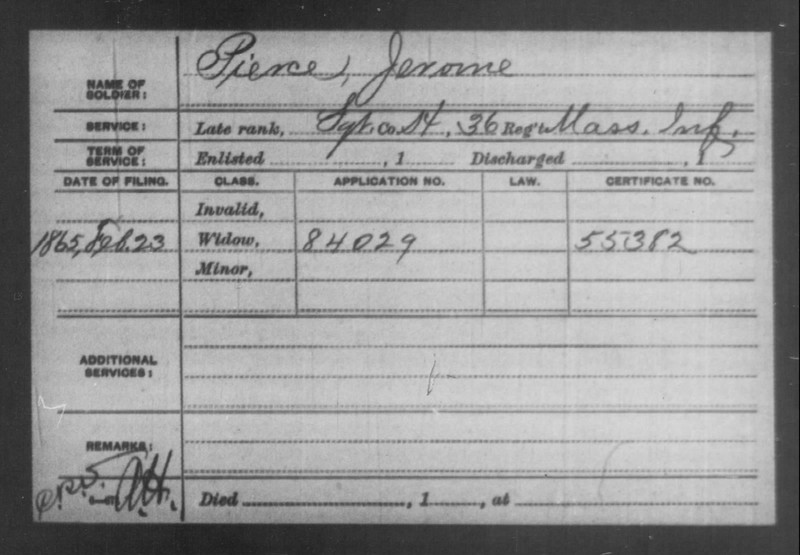 NAME OF SOLDIER: Pierce, Jerome
SERVICE: Late rank, Sgt. Co. H, 36 Reg't Mass. Inf.
TERM OF SERVICE: Enlisted , 1 Discharged , 1
DATE OF FILING. CLASS. APPLICATION NO. LAW. CERTIFICATE NO.
Invalid,
1865, Feb. 23 Widow, 84029 55382
Minor,
ADDITIONAL SERVICES:
REMARKS:
Died , 1 , at